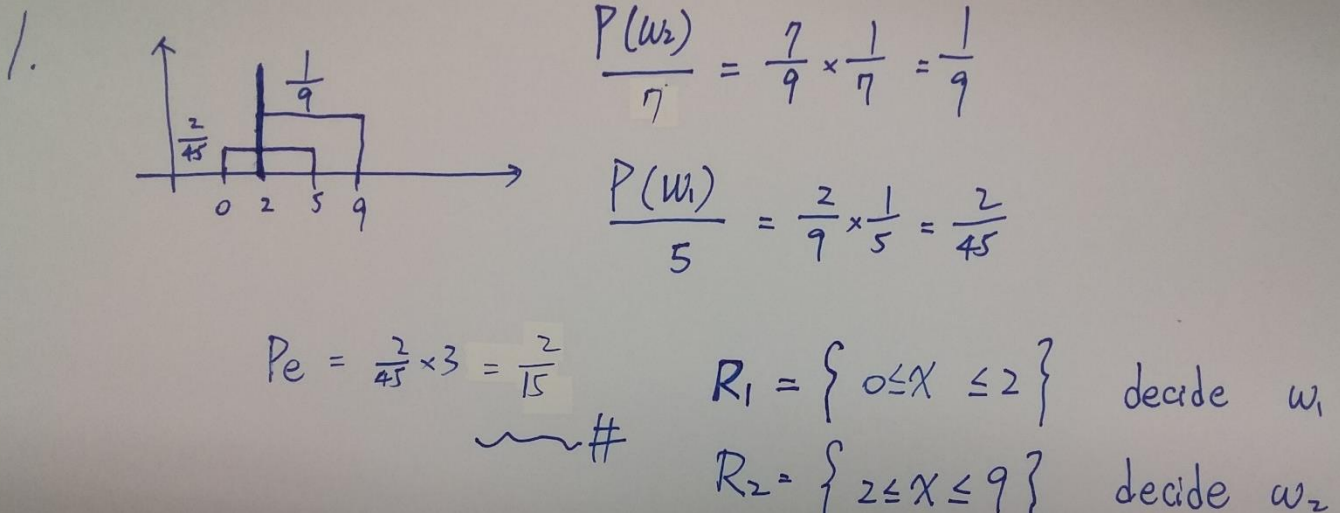 1.
1/9
2/45
0 2 5 9
P(ω₂)/7 = 7/9 × 1/7 = 1/9
P(ω₁)/5 = 2/9 × 1/5 = 2/45
Pe = 2/45 × 3 = 2/15 #
R₁ = { 0 ≤ x ≤ 2 } decide ω₁
R₂ = { 2 ≤ x ≤ 9 } decide ω₂